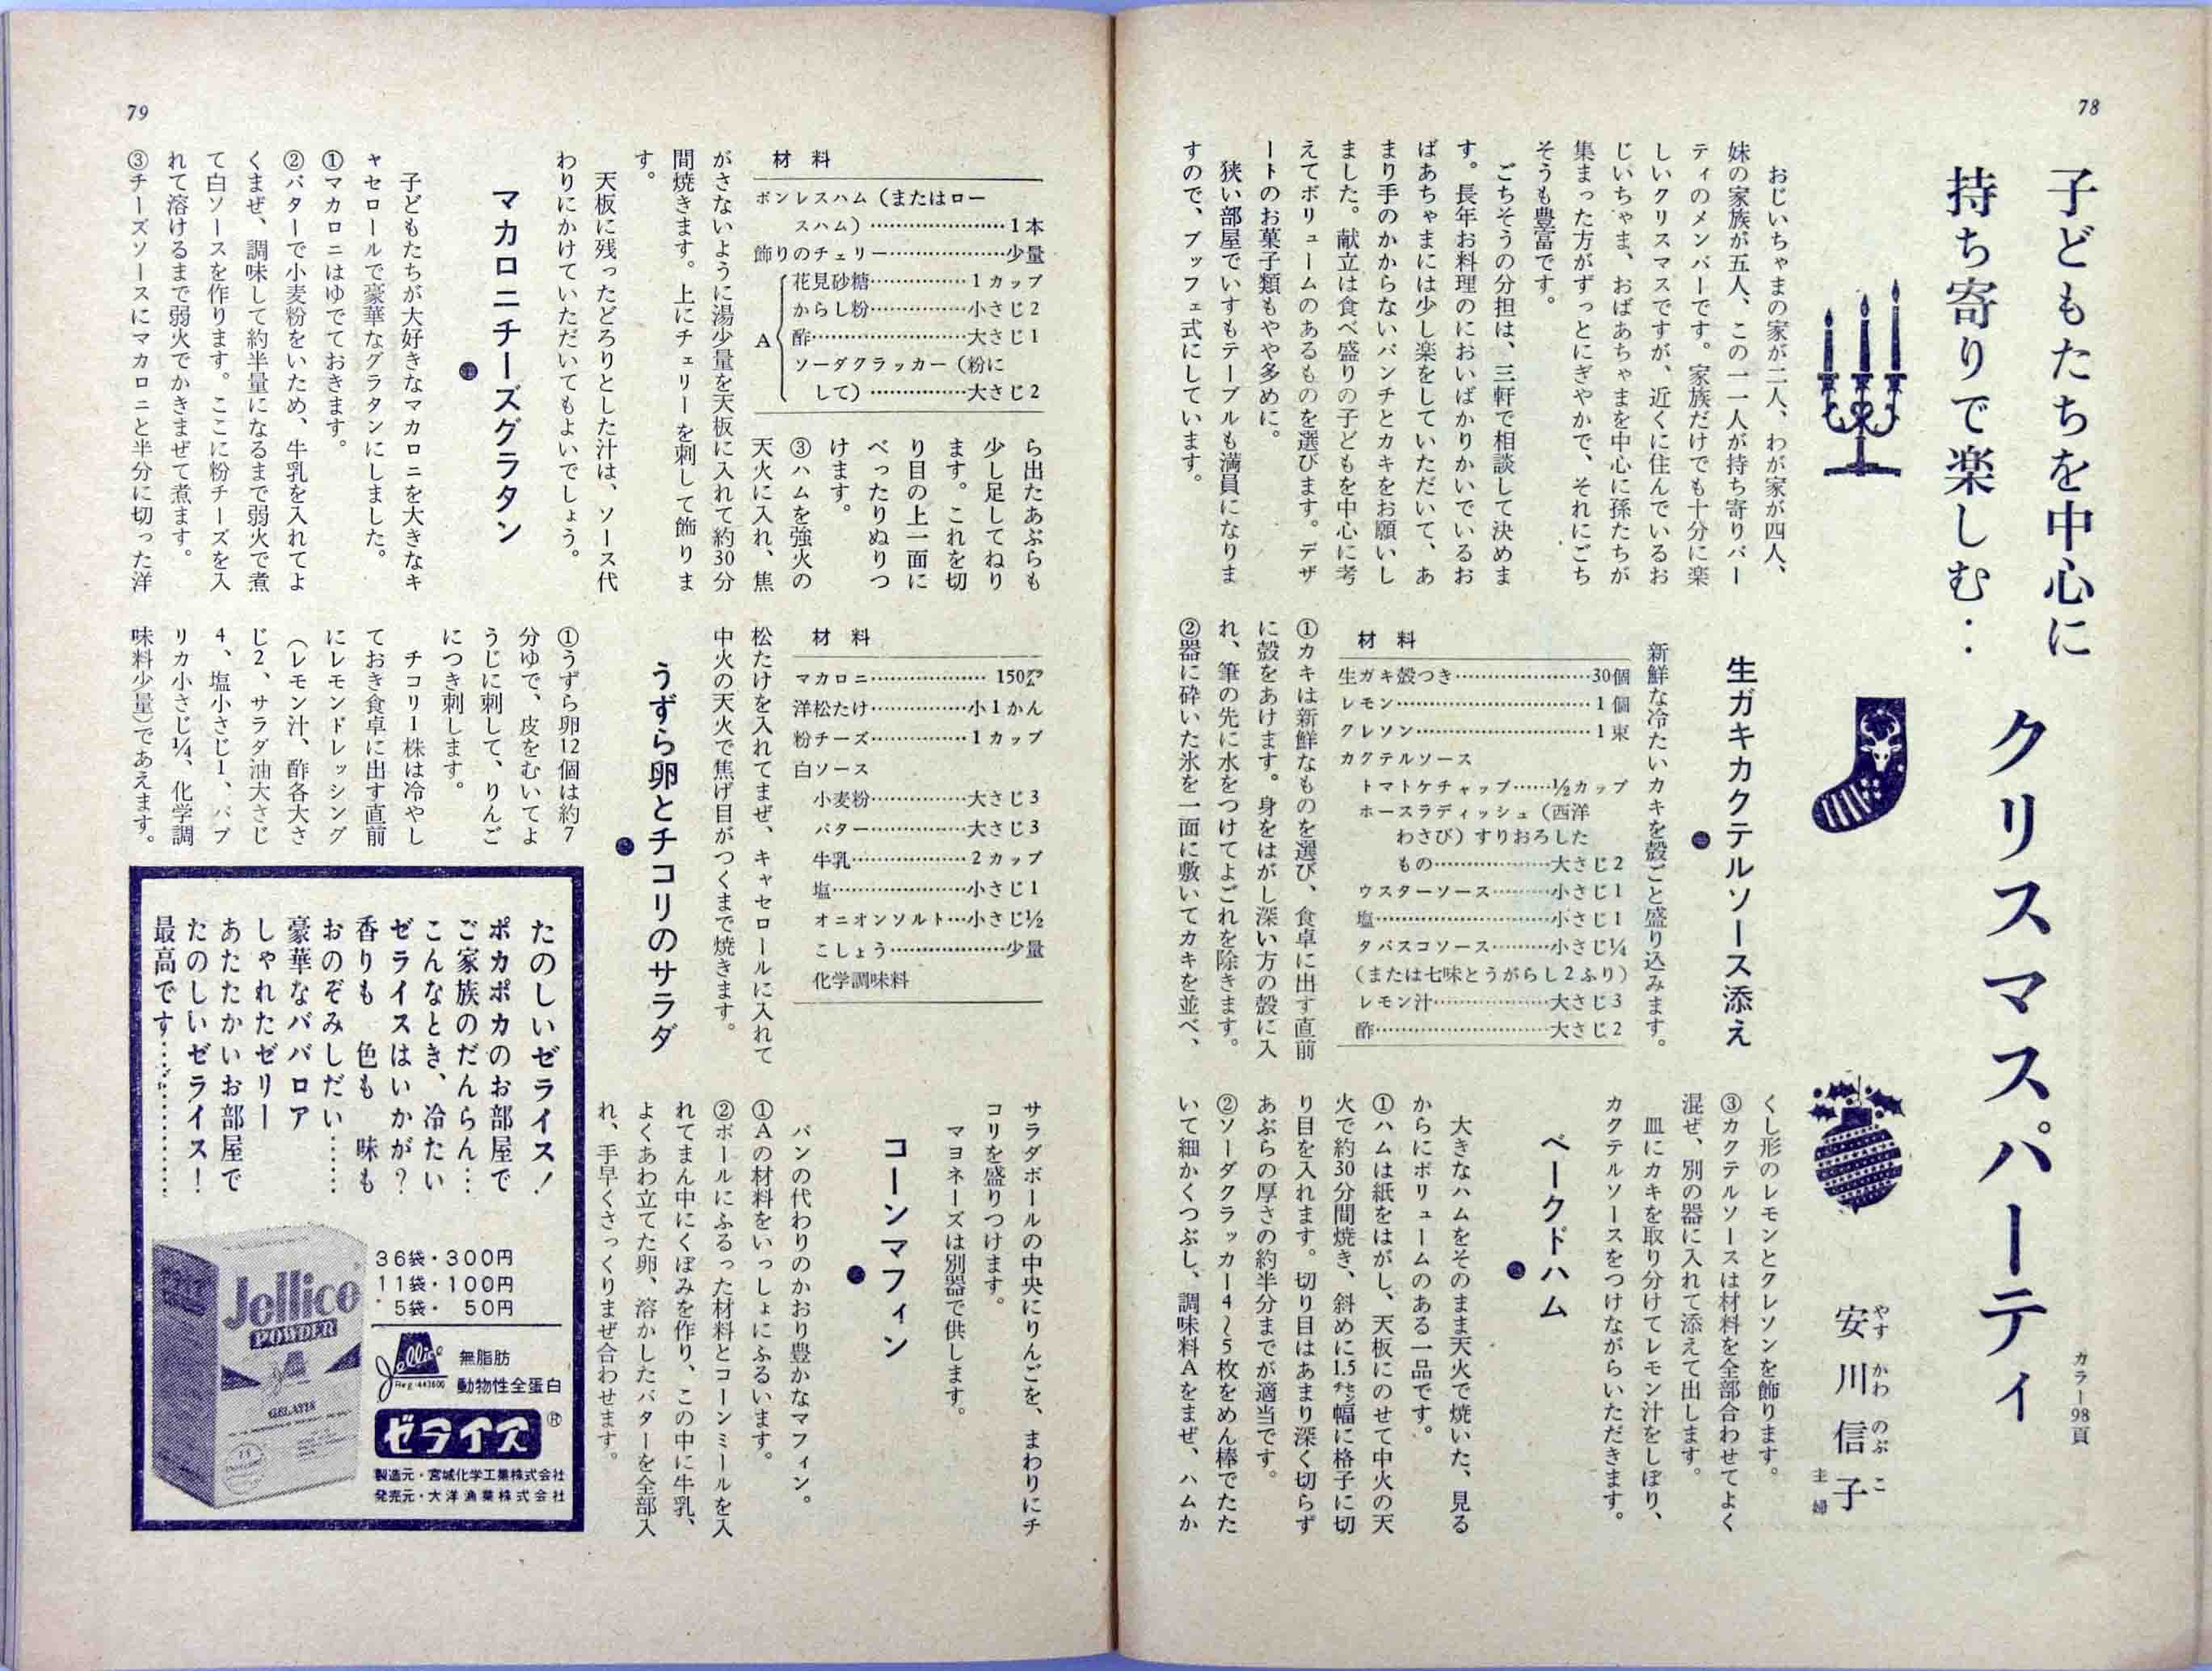 78
子どもたちを中心に
持ち寄りで楽しむ‥
クリスマスパーティ
カラー98頁
安川信子
やすかわのぶこ
主婦
おじいちゃまの家が二人、わが家が四人、
妹の家族が五人、この一一人が持ち寄りパー
ティのメンバーです。家族だけでも十分に楽
しいクリスマスですが、近くに住んでいるお
じいちゃま、おばあちゃまを中心に孫たちが
集まった方がずっとにぎやかで、それにごち
そうも豊富です。
ごちそうの分担は、三軒で相談して決めま
す。長年お料理のにおいばかりかいでいるお
ばあちゃまには少し楽をしていただいて、あ
まり手のかからないパンチとカキをお願いし
ました。献立は食べ盛りの子どもを中心に考
えてボリュームのあるものを選びます。デザ
ートのお菓子類もやや多めに。
狭い部屋でいすもテーブルも満員になりま
すので、ブッフェ式にしています。
生ガキカクテルソース添え
新鮮な冷たいカキを殻ごと盛り込みます。
材料
生ガキ殻つき…………………30個
レモン…………………………1個
クレソン………………………1束
カクテルソース
トマトケチャップ……½カップ
ホースラディッシュ（西洋
わさび）すりおろした
もの………………大さじ2
ウスターソース………小さじ1
塩………………………小さじ1
タバスコソース………小さじ¼
（または七味とうがらし2ふり）
レモン汁………………大さじ3
酢………………………大さじ2
①カキは新鮮なものを選び、食卓に出す直前
に殻をあけます。身をはがし深い方の殻に入
れ、筆の先に水をつけてよごれを除きます。
②器に砕いた氷を一面に敷いてカキを並べ、
くし形のレモンとクレソンを飾ります。
③カクテルソースは材料を全部合わせてよく
混ぜ、別の器に入れて添えて出します。
皿にカキを取り分けてレモン汁をしぼり、
カクテルソースをつけながらいただきます。
ベークドハム
大きなハムをそのまま天火で焼いた、見る
からにボリュームのある一品です。
①ハムは紙をはがし、天板にのせて中火の天
火で約30分間焼き、斜めに1.5㌢幅に格子に切
り目を入れます。切り目はあまり深く切らず
あぶらの厚さの約半分までが適当です。
②ソーダクラッカー4〜5枚をめん棒でたた
いて細かくつぶし、調味料Aをまぜ、ハムか
79
材料
ボンレスハム（またはロー
スハム）…………………1本
飾りのチェリー………………少量
A
花見砂糖……………1カップ
からし粉……………小さじ2
酢……………………大さじ1
ソーダクラッカー（粉に
して）……………大さじ2
ら出たあぶらも
少し足してねり
ます。これを切
り目の上一面に
べったりぬりつ
けます。
③ハムを強火の
天火に入れ、焦
がさないように湯少量を天板に入れて約30分
間焼きます。上にチェリーを刺して飾りま
す。
天板に残ったどろりとした汁は、ソース代
わりにかけていただいてもよいでしょう。
マカロニチーズグラタン
子どもたちが大好きなマカロニを大きなキ
ャセロールで豪華なグラタンにしました。
①マカロニはゆでておきます。
②バターで小麦粉をいため、牛乳を入れてよ
くまぜ、調味して約半量になるまで弱火で煮
て白ソースを作ります。ここに粉チーズを入
れて溶けるまで弱火でかきまぜて煮ます。
③チーズソースにマカロニと半分に切った洋
材料
マカロニ………………150㌘
洋松たけ……………小1かん
粉チーズ……………1カップ
白ソース
小麦粉……………大さじ3
バター……………大さじ3
牛乳………………2カップ
塩…………………小さじ1
オニオンソルト…小さじ½
こしょう………………少量
化学調味料
松たけを入れてまぜ、キャセロールに入れて
中火の天火で焦げ目がつくまで焼きます。
うずら卵とチコリのサラダ
①うずら卵12個は約7
分ゆで、皮をむいてよ
うじに刺して、りんご
につき刺します。
チコリ一株は冷やし
ておき食卓に出す直前
にレモンドレッシング
（レモン汁、酢各大さ
じ2、サラダ油大さじ
4、塩小さじ1、パプ
リカ小さじ¼、化学調
味料少量）であえます。
サラダボールの中央にりんごを、まわりにチ
コリを盛りつけます。
マヨネーズは別器で供します。
コーンマフィン
パンの代わりのかおり豊かなマフィン。
①Aの材料をいっしょにふるいます。
②ボールにふるった材料とコーンミールを入
れてまん中にくぼみを作り、この中に牛乳、
よくあわ立てた卵、溶かしたバターを全部入
れ、手早くさっくりまぜ合わせます。
たのしいゼライス！
ポカポカのお部屋で
ご家族のだんらん…
こんなとき、冷たい
ゼライスはいかが？
香りも 色も 味も
おのぞみしだい……
豪華なババロア
しゃれたゼリー
あたたかいお部屋で
たのしいゼライス！
最高です…………
36袋・300円
11袋・100円
5袋・ 50円
Jellice
POWDER
GELATIN
Jellice
Reg.443600
無脂肪
動物性全蛋白
ゼライス®
製造元・宮城化学工業株式会社
発売元・大洋漁業株式会社